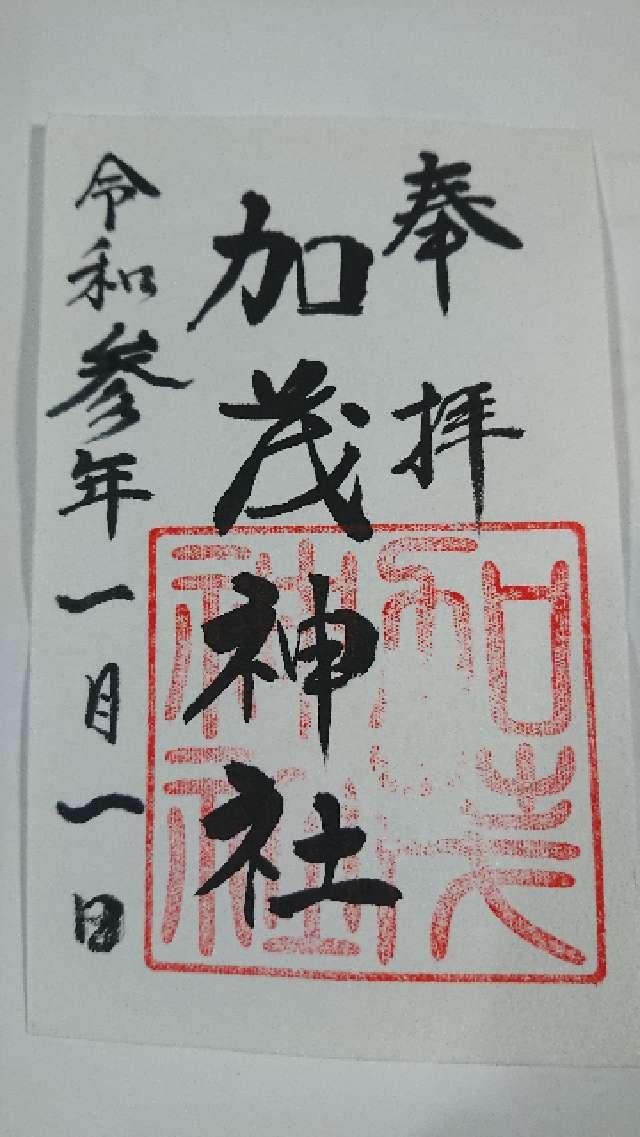 奉拝
加茂神社
令和参年一月一日
加茂神社